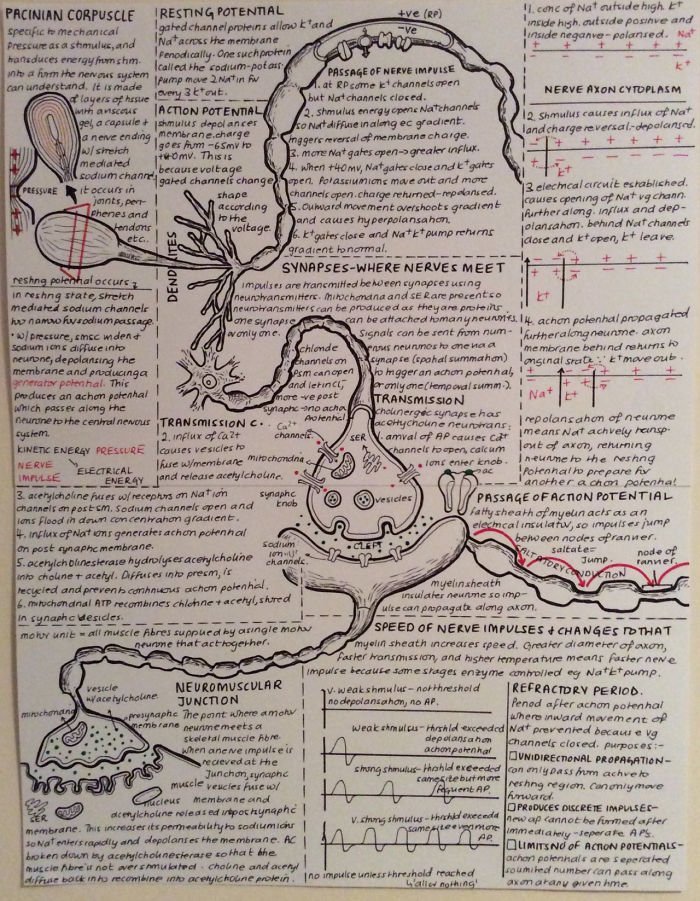 PACINIAN CORPUSCLE
specific to mechanical
pressure as a stimulus, and
transduces energy from stim.
into a form the nervous system
can understand. It is made
of layers of tissue
with a viscous
gel, a capsule +
a nerve ending
w/ stretch
mediated
sodium channel
it occurs in
joints, peri-
phenes and
tendons
etc.
PRESSURE
resting potential occurs
in resting state, stretch
mediated sodium channels
too narrow for sodium passage.
• w/ pressure, smsc widen +
sodium ions diffuse into
neurone, depolarising the
membrane and producing a
generator potential. This
produces an action potential
which passes along the
neurone to the central nervous
system.
KINETIC ENERGY PRESSURE
NERVE IMPULSE
ELECTRICAL ENERGY
RESTING POTENTIAL
gated channel proteins allow K+ and
Na+ across the membrane
periodically. One such protein
called the sodium-potass.
pump move 2 Na+ in for
every 3 K+ out.
ACTION POTENTIAL
stimulus depolarises
membrane. charge
goes from -65mV to
+40mV. This is
because voltage
gated channels change
shape
according
to the
voltage.
DENDRITES
+ve (RP)
-ve
PASSAGE OF NERVE IMPULSE
1. at RP some K+ channels open
but Na+ channels closed.
2. stimulus energy opens Na+ channels
so Na+ diffuse in along ec gradient.
triggers reversal of membrane charge.
3. more Na+ gates open → greater influx.
4. when +40mV, Na+ gates close and K+ gates
open. Potassium ions move out and more
channels open. charge returned - repolarised.
5. Outward movement overshoots gradient
and causes hyperpolarisation.
6. K+ gates close and Na+K+ pump returns
gradient to normal.
1. conc of Na+ outside high. K+
inside high. outside positive and
inside negative - polarised. Na+
K+
NERVE AXON CYTOPLASM
2. stimulus causes influx of Na+
and charge reversal - depolarised.
3. electrical circuit established.
causes opening of Na+ vg chann.
further along. influx and dep-
olarisation. behind Na+ channels
close and K+ open, K+ leave.
K+
4. action potential propagated
further along neurone. axon
membrane behind returns to
original state ∵ K+ move out.
Na+
K+
repolarisation of neurone
means Na+ actively transp.
out of axon, returning
neurone to the resting
potential to prepare for
another action potential
SYNAPSES - WHERE NERVES MEET
impulses are transmitted between synapses using
neurotransmitters. Mitochondria and SER are present so
neurotransmitters can be produced as they are proteins.
one synapse can be attached to many neurones,
or only one.
Signals can be sent from num-
erous neurones to one via a
synapse (spatial summation)
to trigger an action potential,
or only one (temporal summ.).
chloride
channels on
PSM can open
and let in Cl-,
more -ve post
synaptic → no action
potential
TRANSMISSION
cholinergic synapse has
acetylcholine neurotrans.
1. arrival of AP causes Ca2+
channels to open, calcium
ions enter knob.
TRANSMISSION C..
2. influx of Ca2+
causes vesicles to
fuse w/ membrane
and release acetylcholine.
Ca2+
channels
SER
mitochondria
synaptic
knob
vesicles
CLEFT
sodium
ion
channels.
3. acetylcholine fuses w/ receptors on Na+ ion
channels on postsm. Sodium channels open and
ions flood in down concentration gradient.
4. influx of Na+ ions generates action potential
on post synaptic membrane.
5. acetylcholinesterase hydrolyses acetylcholine
into choline + acetyl. Diffuses into presm, is
recycled and prevents continuous action potential.
6. mitochondrial ATP recombines choline + acetyl, stored
in synaptic vesicles.
PASSAGE OF ACTION POTENTIAL
fatty sheath of myelin acts as an
electrical insulator, so impulses jump
between nodes of ranvier.
saltate =
jump.
SALTATORY CONDUCTION
node of
ranvier.
myelin sheath
insulates neurone so imp-
ulse can propagate along axon.
motor unit = all muscle fibres supplied by a single motor
neurone that act together.
SPEED OF NERVE IMPULSES + CHANGES TO THAT
myelin sheath increases speed. Greater diameter of axon,
faster transmission, and higher temperature means faster nerve
impulse because some stages enzyme controlled eg Na+K+ pump.
NEUROMUSCULAR
JUNCTION
vesicle
w/ acetylcholine.
mitochondria
presynaptic
membrane
The point where a motor
neurone meets a
skeletal muscle fibre.
When a nerve impulse is
recieved at the
junction, synaptic
vesicles fuse w/
membrane and
acetylcholine released into postsynaptic
membrane. This increases its permeability to sodium ions
so Na+ enters rapidly and depolarises the membrane. AC
broken down by acetylcholinesterase so that the
muscle fibre is not over stimulated - choline and acetyl
diffuse back into recombine into acetylcholine protein.
muscle
nucleus
SER
v. weak stimulus - not threshold
no depolarisation, no AP.
weak stimulus - thrshld exceeded
depolarisation
action potential
strong stimulus - thrshld exceeded
same size but more
frequent AP.
v. strong stimulus - thrshld exceeded
same size even more
AP.
no impulse unless threshold reached
↳ 'all or nothing'
REFRACTORY PERIOD.
Period after action potential
where inward movement of
Na+ prevented because vg
channels closed. purposes:-
□ UNIDIRECTIONAL PROPAGATION -
can only pass from active to
resting region. Can only move
forward.
□ PRODUCES DISCRETE IMPULSES -
new ap cannot be formed after
immediately - seperate APs.
□ LIMITS NO OF ACTION POTENTIALS -
action potentials are seperated
so limited number can pass along
axon at any given time.